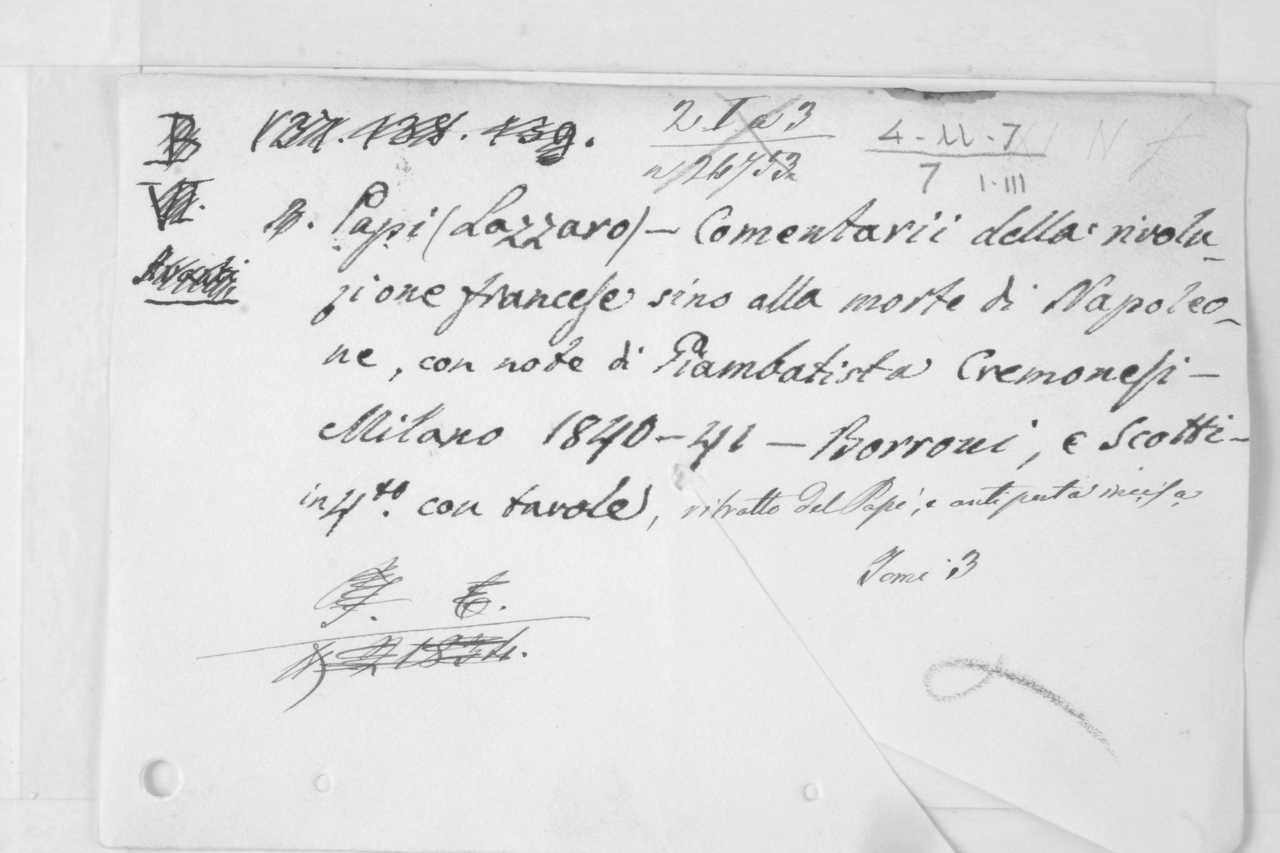 B 137. 138. 139. 2 I a 3 4-11-7
VII. n 26753 7 I-III
B. Papi (Lazzaro) – Comentarii della rivolu-
zione francese sino alla morte di Napoleo-
ne, con note di Giambatista Cremonesi –
Milano 1840-41 – Borroni, e Scotti –
in 4to. con tavole, ritratto del Papi, e antiporta incisa
Tomi 3